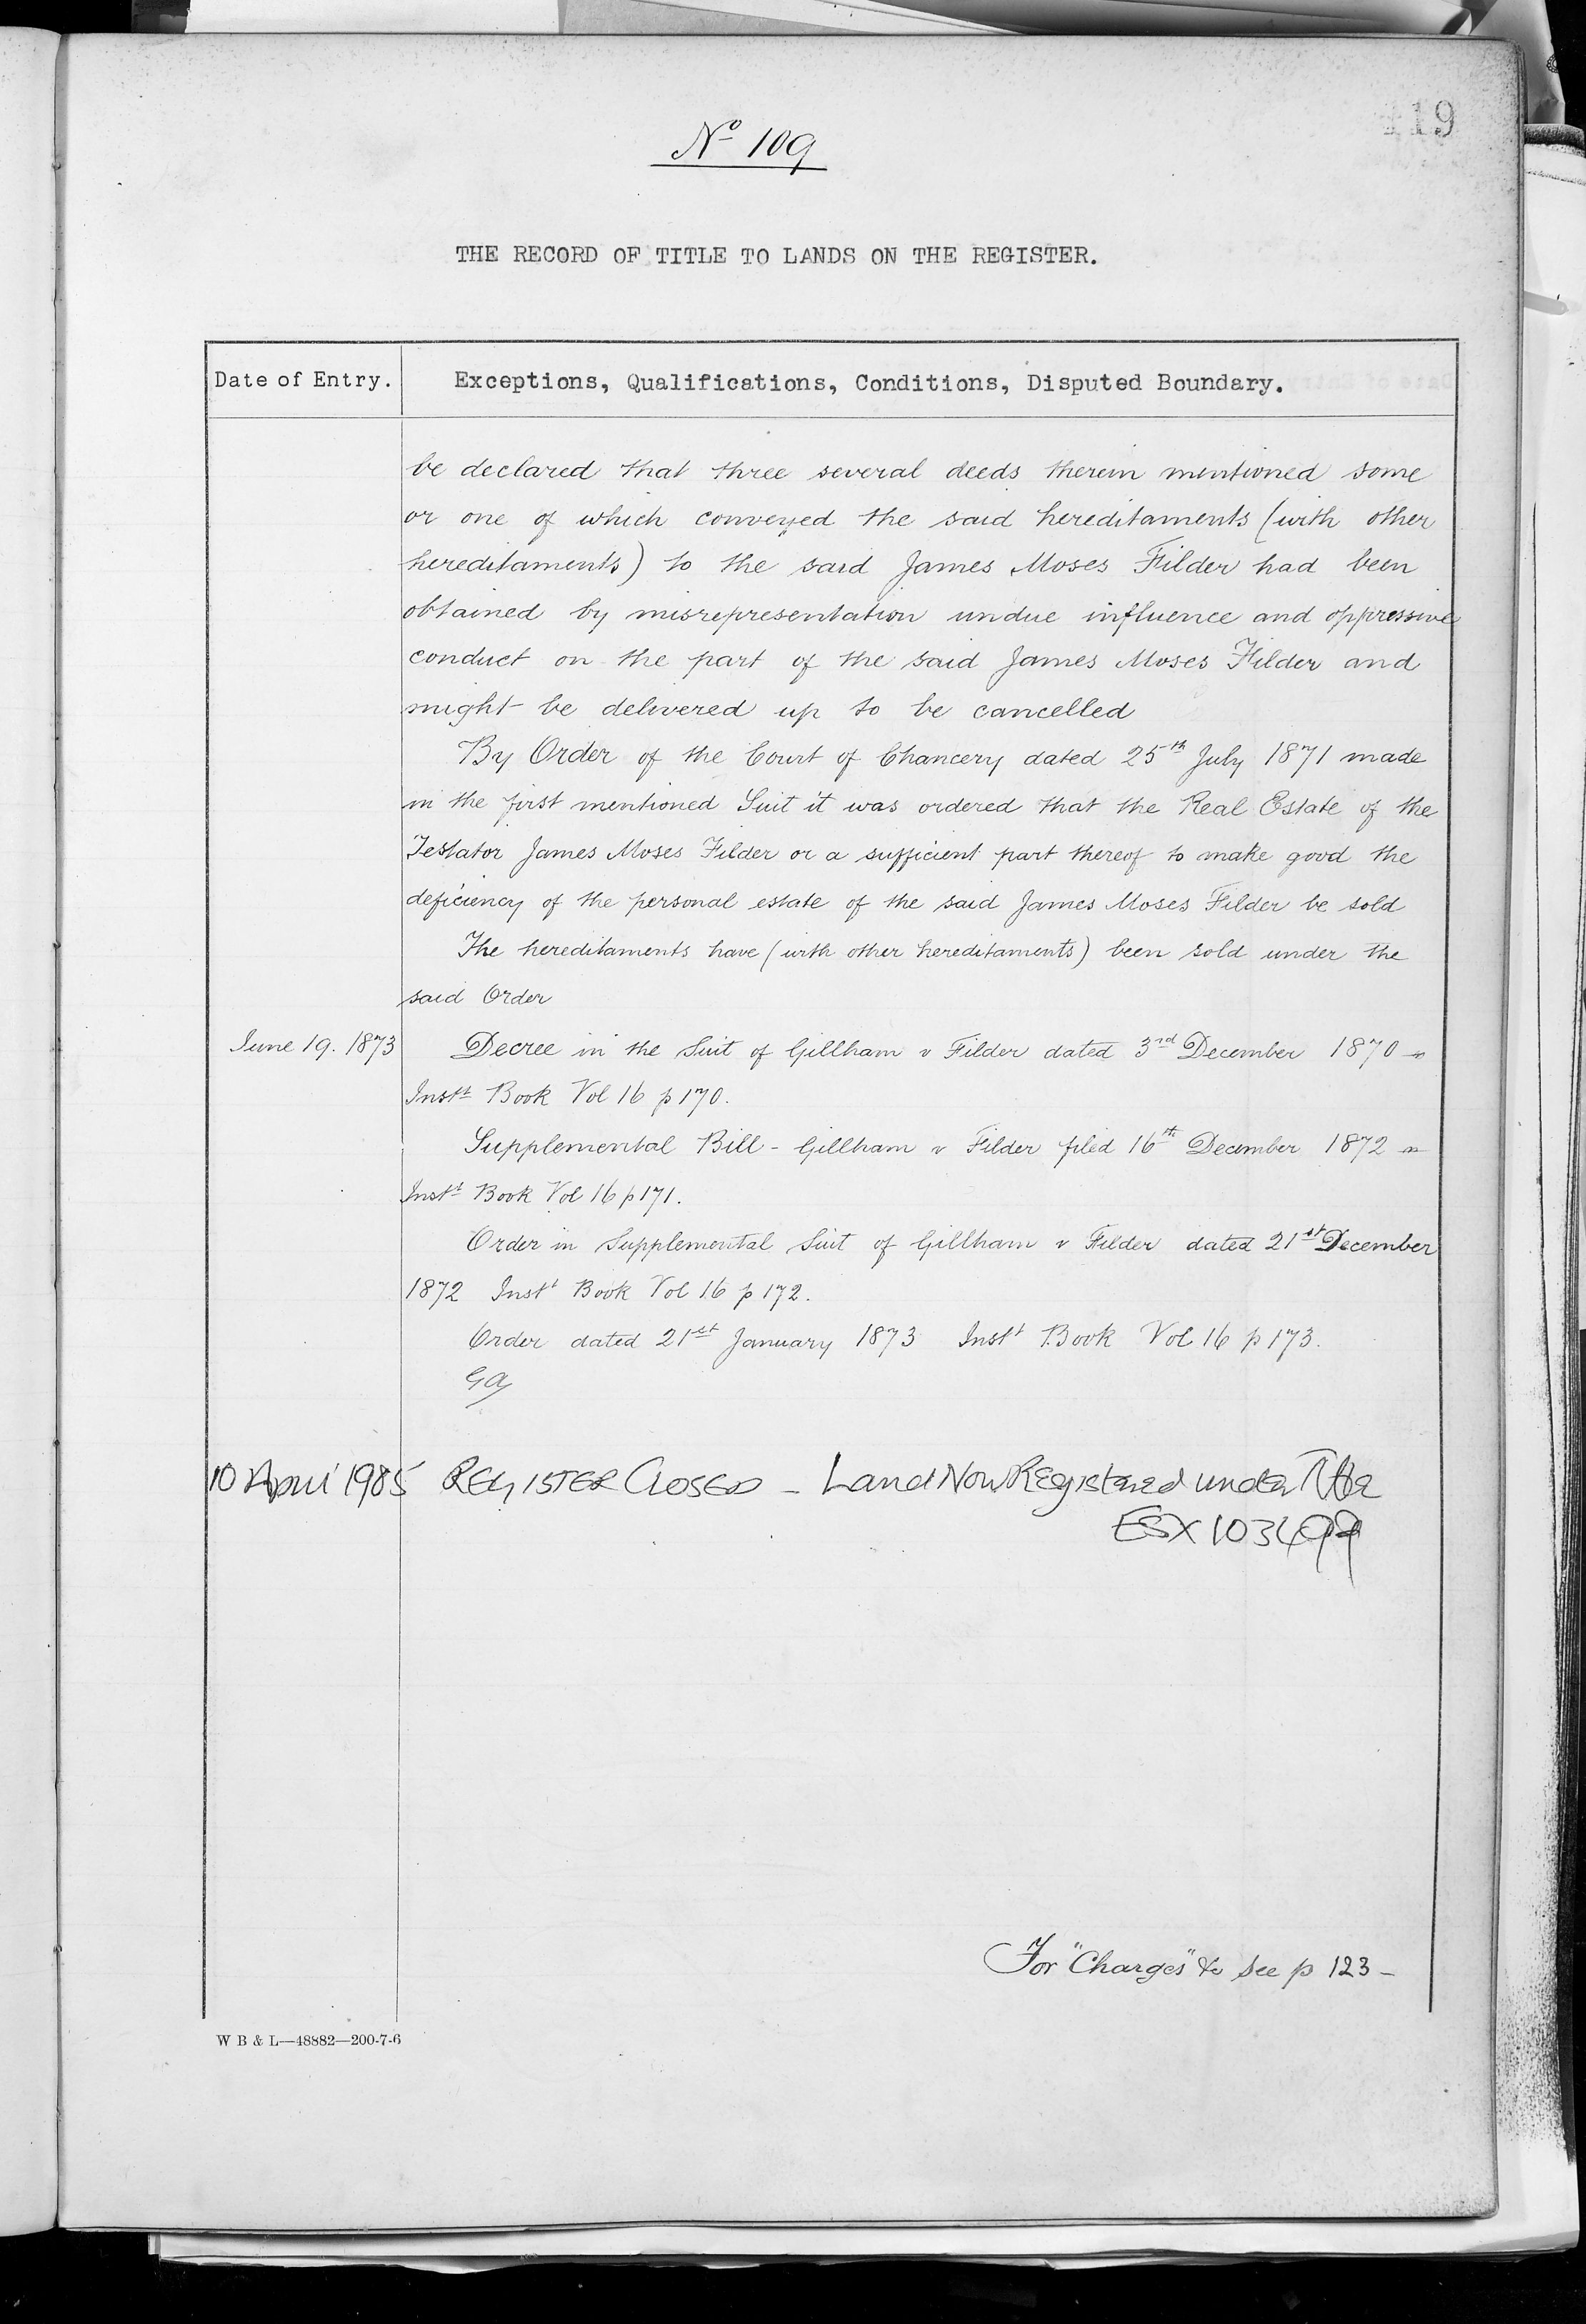 119
No 109
THE RECORD OF TITLE TO LANDS ON THE REGISTER.
Date of Entry. Exceptions, Qualifications, Conditions, Disputed Boundary.
be declared that three several deeds therein mentioned some
or one of which conveyed the said hereditaments (with other
hereditaments) to the said James Moses Filder had been
obtained by misrepresentation undue influence and oppressive
conduct on the part of the said James Moses Filder and
might be delivered up to be cancelled
By Order of the Court of Chancery dated 25th July 1871 made
in the first mentioned Suit it was ordered that the Real Estate of the
Testator James Moses Filder or a sufficient part thereof to make good the
deficiency of the personal estate of the said James Moses Filder be sold
The hereditaments have (with other hereditaments) been sold under the
said Order
June 19. 1873 Decree in the Suit of Gillham v Filder dated 3rd December 1870
Instt Book Vol 16 p 170.
Supplemental Bill - Gillham v Filder filed 16th December 1872
Instt Book Vol 16 p 171.
Order in Supplemental Suit of Gillham v Filder dated 21st December
1872 Instt Book Vol 16 p 172.
Order dated 21st January 1873 Instt Book Vol 16 p 173.
10 April 1985 REGISTER CLOSED - Land Now Registered under Title
ESX 103499
For "Charges" &c see p 123 -
W B & L—48882—200-7-6